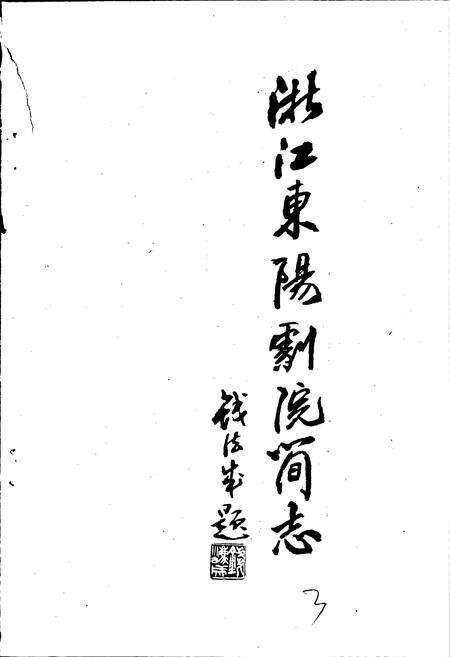 浙江東陽劇院简志
钱法成題
3